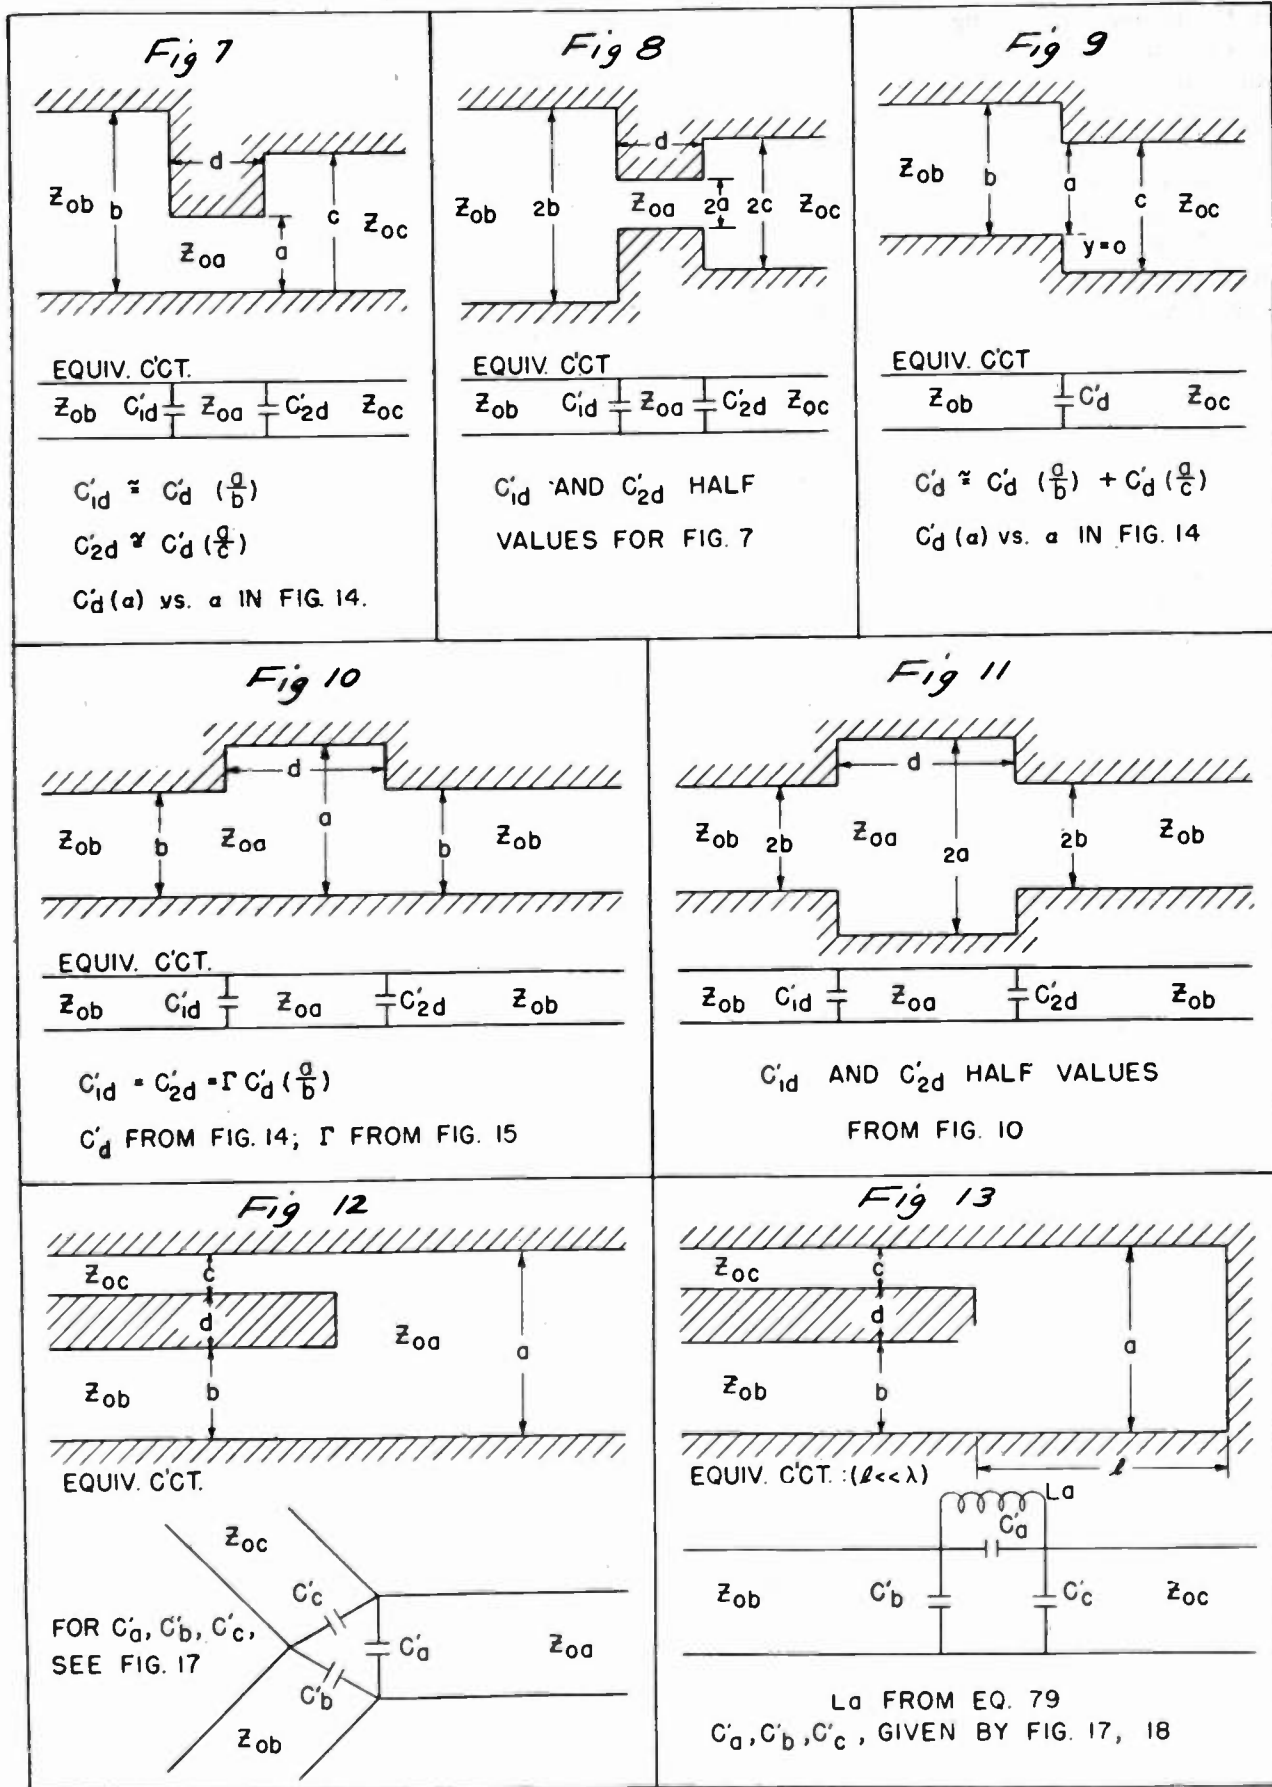 Fig 7
d
Zob
b
c
Zoc
Zoa
a
EQUIV. C'CT.
Zob C'1d Zoa C'2d Zoc
C'1d ≅ C'd (a/b)
C'2d ≅ C'd (a/c)
C'd (a) vs. a IN FIG. 14.
Fig 8
d
Zob
2b
Zoa
2a
2c
Zoc
EQUIV. C'CT
Zob C'1d Zoa C'2d Zoc
C'1d AND C'2d HALF
VALUES FOR FIG. 7
Fig 9
Zob
b
a
c
Zoc
y=0
EQUIV. C'CT
Zob C'd Zoc
C'd ≅ C'd (a/b) + C'd (a/c)
C'd (a) vs. a IN FIG. 14
Fig 10
d
a
Zob
b
Zoa
b
Zob
EQUIV. C'CT.
Zob C'1d Zoa C'2d Zob
C'1d = C'2d = Γ C'd (a/b)
C'd FROM FIG. 14; Γ FROM FIG. 15
Fig 11
d
Zob
2b
Zoa
2a
2b
Zob
Zob C'1d Zoa C'2d Zob
C'1d AND C'2d HALF VALUES
FROM FIG. 10
Fig 12
Zoc
c
d
Zoa
a
Zob
b
EQUIV. C'CT.
Zoc
C'c
FOR C'a, C'b, C'c,
SEE FIG. 17
C'a
Zoa
C'b
Zob
Fig 13
Zoc
c
d
a
Zob
b
EQUIV. C'CT. :(l<<λ)
l
La
C'a
Zob C'b C'c Zoc
La FROM EQ. 79
C'a, C'b, C'c, GIVEN BY FIG. 17, 18